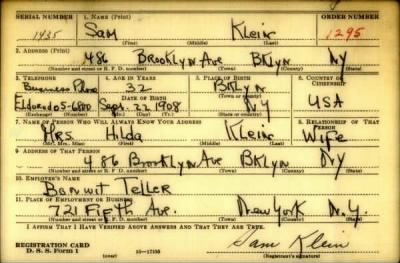 SERIAL NUMBER 1. NAME (Print) ORDER NUMBER
1935 Sam Klein 1295
(First) (Middle) (Last)
2. ADDRESS (Print)
486 Brooklyn Ave Bklyn NY
(Number and street or R. F. D. number) (Town) (County) (State)
3. TELEPHONE 4. AGE IN YEARS 5. PLACE OF BIRTH 6. COUNTRY OF CITIZENSHIP
Business Phone 32 Bklyn
DATE OF BIRTH (Town or county)
Eldorado 5-6800 Sept. 22 1908 NY USA
(Exchange) (Number) (Mo.) (Day) (Yr.) (State or country)
7. NAME OF PERSON WHO WILL ALWAYS KNOW YOUR ADDRESS 8. RELATIONSHIP OF THAT PERSON
Mrs. Hilda Klein Wife
(Mr., Mrs., Miss) (First) (Middle) (Last)
9. ADDRESS OF THAT PERSON
486 Brooklyn Ave Bklyn NY
(Number and street or R. F. D. number) (Town) (County) (State)
10. EMPLOYER'S NAME
Bonwit Teller
11. PLACE OF EMPLOYMENT OR BUSINESS
721 Fifth Ave. New York N.Y.
(Number and street or R. F. D. number) (Town) (County) (State)
I AFFIRM THAT I HAVE VERIFIED ABOVE ANSWERS AND THAT THEY ARE TRUE.
REGISTRATION CARD
D. S. S. Form 1 16-17105 Sam Klein
(Registrant's signature)